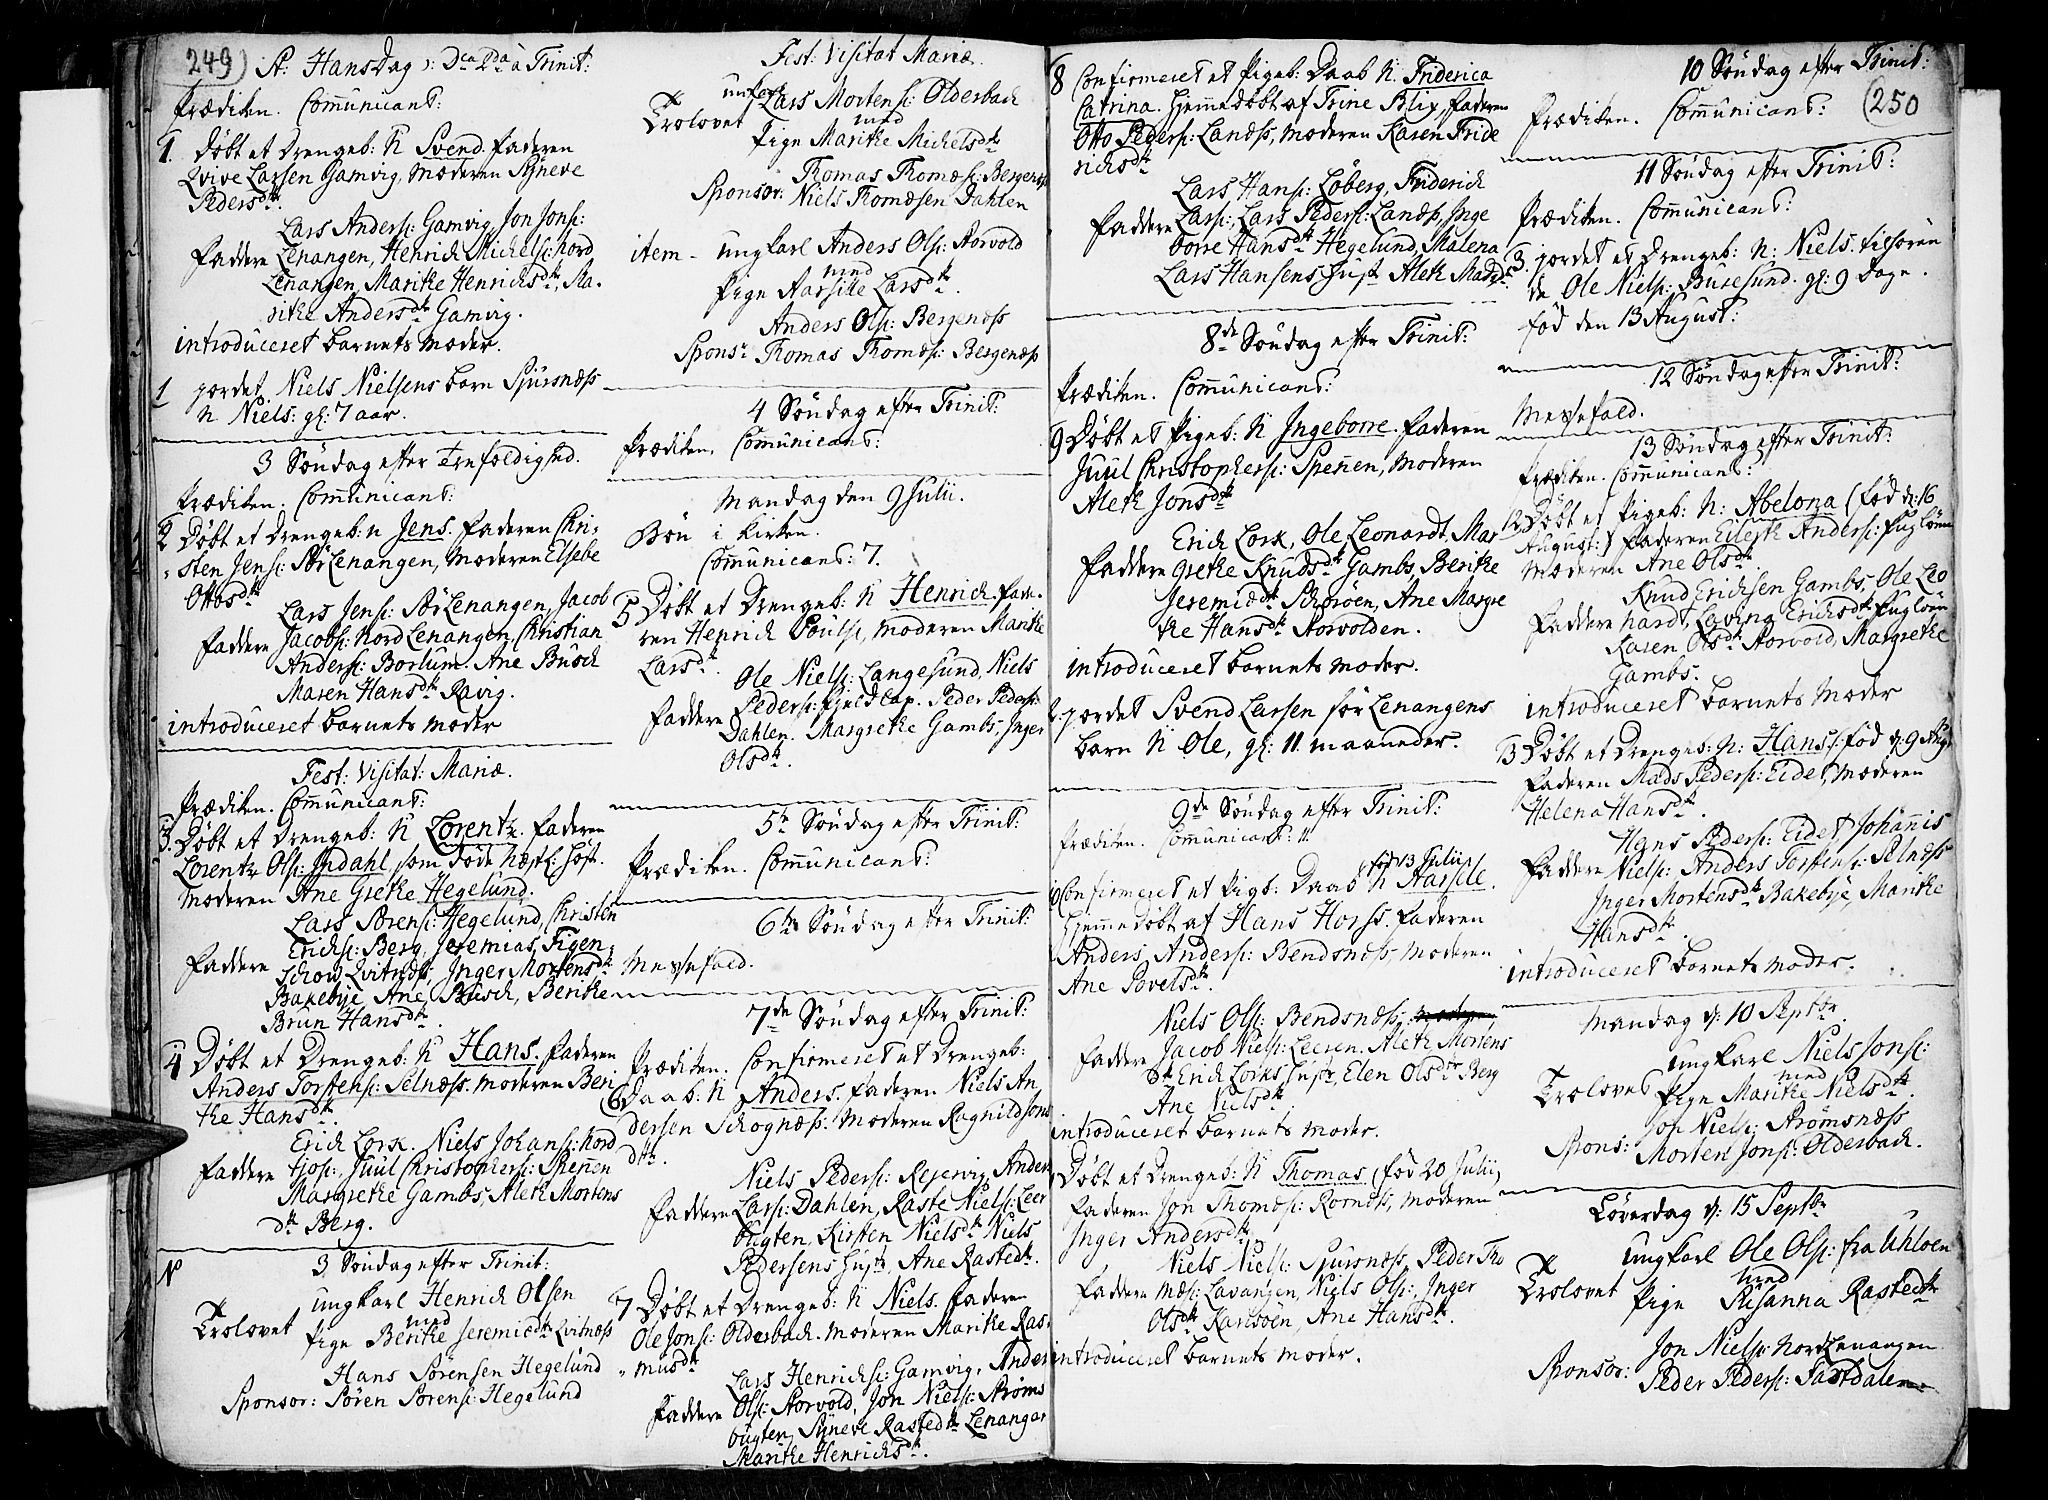 249)
St: Hansdag ɔ: Dca 2da à Trinit:
Prædiken. Communicant:
1. Døbt et Drengeb: N Svend. Faderen
Qvive Larsen Gamvig, Moderen Syneve
Pedersdtr.
Lars Anders: Gamvig, Jon Jons:
Faddere Lenangen, Henrich Michels: Nord
Lenangen, Maritke Henrichsdtr, Ma-
ritke Andersdtr Gamvig.
introduceret barnets Moder.
1 jordet Niels Nielsens barn Spursnæss
N Niels: gl: 7 aar.
3 Søndag efter Trefoldighed.
Prædiken. Communicant:
2 Døbt et Drengeb: N Jens. Faderen Chri-
sten Jens: SørLenangen, Moderen Elsebe
Ottosdtr
Lars Jens: SørLenangen, Jacob
Faddere Jacobs: Nord Lenangen, Christian
Anders: Borlum. Ane Busch
Maren Hansdtr Ravig.
introduceret barnets moder
Fest: Visitat: Mariæ.
Prædiken. Communicant:
3. Døbt et Drengeb: N Lorentz. Faderen
Lorentz Ols: Indahl som døde næstl: høst.
Moderen Ane Gretke Hegelund.
Lars Sørens: Hegelund, Christen
Erichs: Berg, Jeremias Figen-
Faddere schou Qvitnæs, Inger Mortensdtr
Bakebye, Ane Busch, Beritke
Brun Hansdtr.
4 Døbt et Drengeb: N Hans. Faderen
Anders Torstens: Selnæss. Moderen Beri
tke Hansdtr.
Erich Lorx. Niels Johans: Nord
Faddere fjos: Juul Christophers: Spenen
Margretke Gambs, Aletk Mortens
dtr Berg.
3 Søndag efter Trinit:
Trolovet ungkarl Henrich Olsen
med
Pige Beritke Jeremiædtr Qvitnæss
Hans Sørensen Hegelund
Sponsor: Søren Sørens: Hegelund
Fest: Visitat Mariæ.
Trolovet ungkarl Lars Mortens: Oldersbach
med
Pige Maritke Michelsdtr
Thomas Thomæs: Bergenæss
Sponsor: Niels Thomæsen Dahlen
item - ungkarl Anders Ols: Storvold
med
Pige Marsille Larsdtr.
Anders Ols: Bergenæss
Sponsr Thomas Thomæs: Bergenæss
4 Søndag efter Trinit:
Prædiken. Communicant:
Mandag den 9 Julii.
Bøn i Kirken.
Communicant: 7.
5 Døbt et Drengeb: N Henrich. Fade-
ren Henrich Pouls:, Moderen Maritke
Larsdtr.
Ole Niels: Langesund, Niels
Peders: Fjeld Lap. Peder Peders:
Faddere Dahlen. Margretke Gambs, Inger
Olsdtr.
5te Søndag efter Trinit:
Prædiken. Communicant:
6te Søndag efter Trinit:
Messefald.
7de Søndag efter Trinit:
Prædiken. Confirmeret et Drengeb:
6 Daab: N Anders. Faderen Niels An
dersen Schognæss: Moderen Ragnild Jons
dtr.
Niels Peders: Rejervig, Anders
Faddere Lars: Dahlen, Raste Niels: Leer
bugten, Kirsten Nielsdtr Niels
Pedersens hustr, Ane Rastedtr.
7 Døbt et Drengeb: N Niels. Faderen
Ole Jons: Oldersbach. Moderen Maritke Ras-
musdtr
Lars Henrichs: Gamvig, Anders
Faddere Ols: Storvold, Jon Niels: Strøms
bugten, Syneve Rastedtr Lenangar
Maritke Henrichsdtr.
8 Confirmeret et Pigeb: Daab N. Friderica
Catrina. Hjemmedøbt af Trine Blix, Faderen
Otto Peders: Landss, Moderen Karen Fride
richsdtr
Lars Hans: Løberg, Friderich
Faddere Lars:, Lars Peders: Landss, Inge
borre Hansdtr Hegelund, Malena
Lars Hansens hustr Aletk Madsdtr.
8de Søndag efter Trinit:
Prædiken. Communicant:
9 Døbt et Pigeb: N Ingeborre. Faderen
Juul Christophers: Spenen, Moderen
Aletk Jonsdtr
Erich Lorx, Ole Leonardt, Mar
Faddere gretke Knudsdtr Gambs, Beritke
Jeremiædtr Schorøen, Ane Margre
tke Hansdtr Storvolden.
introduceret barnets moder.
2. jordet Svend Larsen Sør Lenangens
barn N Ole, gl: 11 maaneder.
9de Søndag efter Trinit:
Prædiken. Communicant: 11.
10 Confirmeret et Pigeb: Daab N Marsele. (fød 13 Julii)
Hjemmedøbt af Hans Horss. Faderen
Anders Anders: Bendsnæss, Moderen
Ane Povelsdtr.
Niels Ols: Bendsnæss,
Faddere Jacob Niels: Leeren. Aletk Mortens
dtr Erich Lorks hustr, Elen Olsdtr Berg
Ane Nielsdtr.
introduceret barnets moder.
Døbt et Drengeb: N Thomas (fød 20 Julii)
Faderen Jon Thomæs: Rornæss, Moderen
Inger Andersdtr.
Niels Niels: Spursnæss, Peder Tho
Faddere mæs: Lavangen, Niels Ols:, Inger
Olsdtr Karlsøen, Ane Hansdtr.
introduceret barnets moder.
10 Søndag efter Trinit:
(250
Prædiken. Communicant:
11 Søndag efter Trinit:
Prædiken. Communicant:
3. jordet et Drengeb: N: Niels.
Ole Niels: Buresund. gl: 9 Dage.
fød den 13 August:
12 Søndag efter Trinit:
Messefald.
13 Søndag efter Trinit:
Prædiken. Communicant:
12 Døbt et Pigeb: N: Abelona (fød d: 16
August:) Faderen Eilertk Anders: Fugløen
Moderen Ane Olsdtr.
Knud Erichsen Gambs, Ole Leo
Faddere nardt, Lavina Erichsdtr Fugløen
Karen Olsdtr Storvold, Margretke
Gambs.
introduceret barnets Moder
13 Døbt et Drengeb: N: Hans (: fød d: 9 Aug:
Faderen Mads Peders: Eidet, Moderen
Helena Hansdtr.
Hans Peders: Eidet Johannis
Faddere Niels: Anders Torstens: Selnæss
Inger Mortensdtr Bakebye, Maritke
Hansdtr.
introduceret barnets moder.
Mandag d: 10 Septbr.
ungkarl Niels Jons:
med
Trolovet Pige Maritke Nielsdtr.
Jon Niels: Strømsnæss
Spons: Morten Jons: Oldersbach.
Løverdag d: 15 Septbr
ungkarl Ole Ols: fra Uhløen
med
Trolovet Pige Susanna Rastedtr
Jon Niels: NordLenangen
Sponsor: Peder Peders: Sardalen